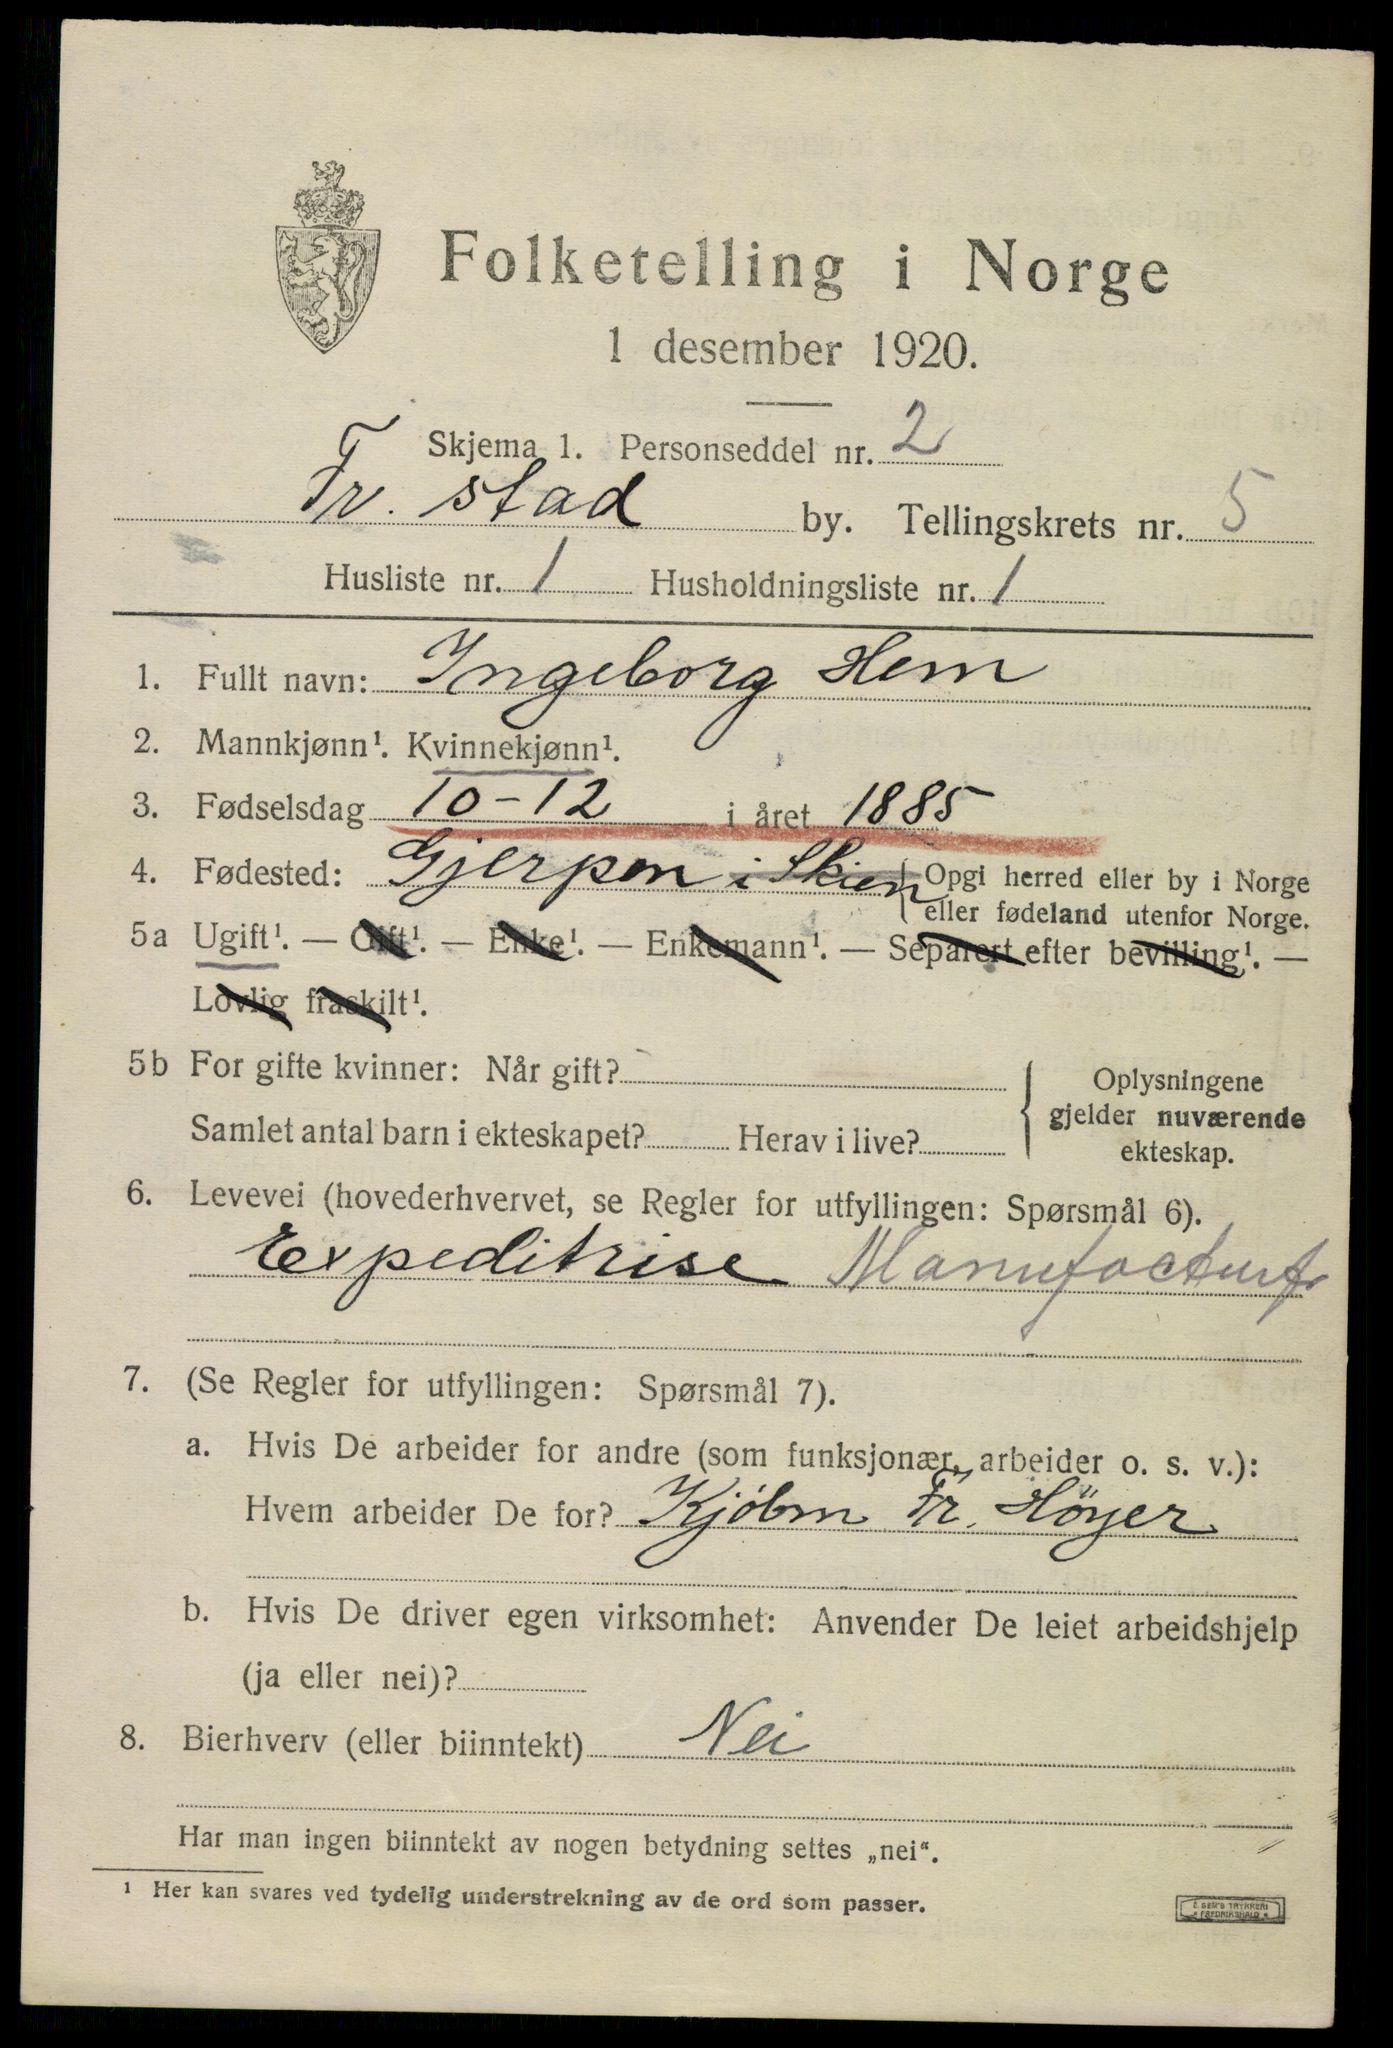 Folketelling i Norge
1 desember 1920.
Skjema 1. Personseddel nr. 2
Fr. stad by. Tellingskrets nr. 5
Husliste nr. 1 Husholdningsliste nr. 1
1. Fullt navn: Ingeborg Hem
2. Mannkjønn¹. Kvinnekjønn¹.
3. Fødselsdag 10-12 i året 1885
4. Fødested: Gjerpen i Skien { Opgi herred eller by i Norge
eller fødeland utenfor Norge.
5a Ugift¹. — Gift¹. — Enke¹. — Enkemann¹. — Separert efter bevilling¹. —
Lovlig fraskilt¹.
5b For gifte kvinner: Når gift?
Samlet antal barn i ekteskapet? Herav i live?
{ Oplysningene
gjelder nuværende
ekteskap.
6. Levevei (hovederhvervet, se Regler for utfyllingen: Spørsmål 6).
Expeditrise Manufacturf.
7. (Se Regler for utfyllingen: Spørsmål 7).
a. Hvis De arbeider for andre (som funksjonær, arbeider o. s. v.):
Hvem arbeider De for? Kjöbm Fr. Höyer
b. Hvis De driver egen virksomhet: Anvender De leiet arbeidshjelp
(ja eller nei)?
8. Bierhverv (eller biinntekt) Nei
Har man ingen biinntekt av nogen betydning settes „nei“.
¹ Her kan svares ved tydelig understrekning av de ord som passer.
E. SEM'S TRYKKERI
FREDRIKSHALD